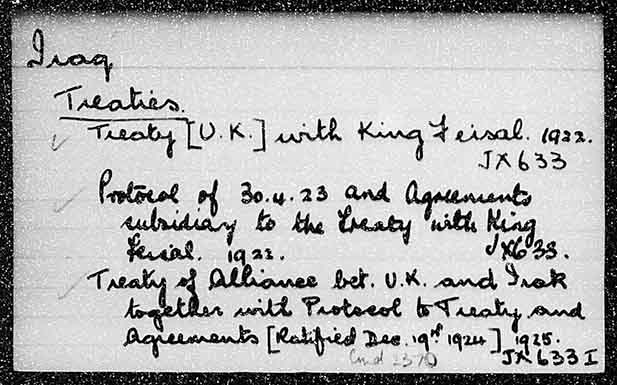 Iraq
Treaties.
Treaty [U.K.] with King Feisal. 1922.
JX633
Protocol of 30.4.23 and Agreements
subsidiary to the Treaty with King
Feisal. 1922. JX633.
Treaty of Alliance bet. U.K. and Irak
together with Protocol to Treaty and
Agreements [Ratified Dec. 19th 1924] 1925.
Cmd 2370 JX633I